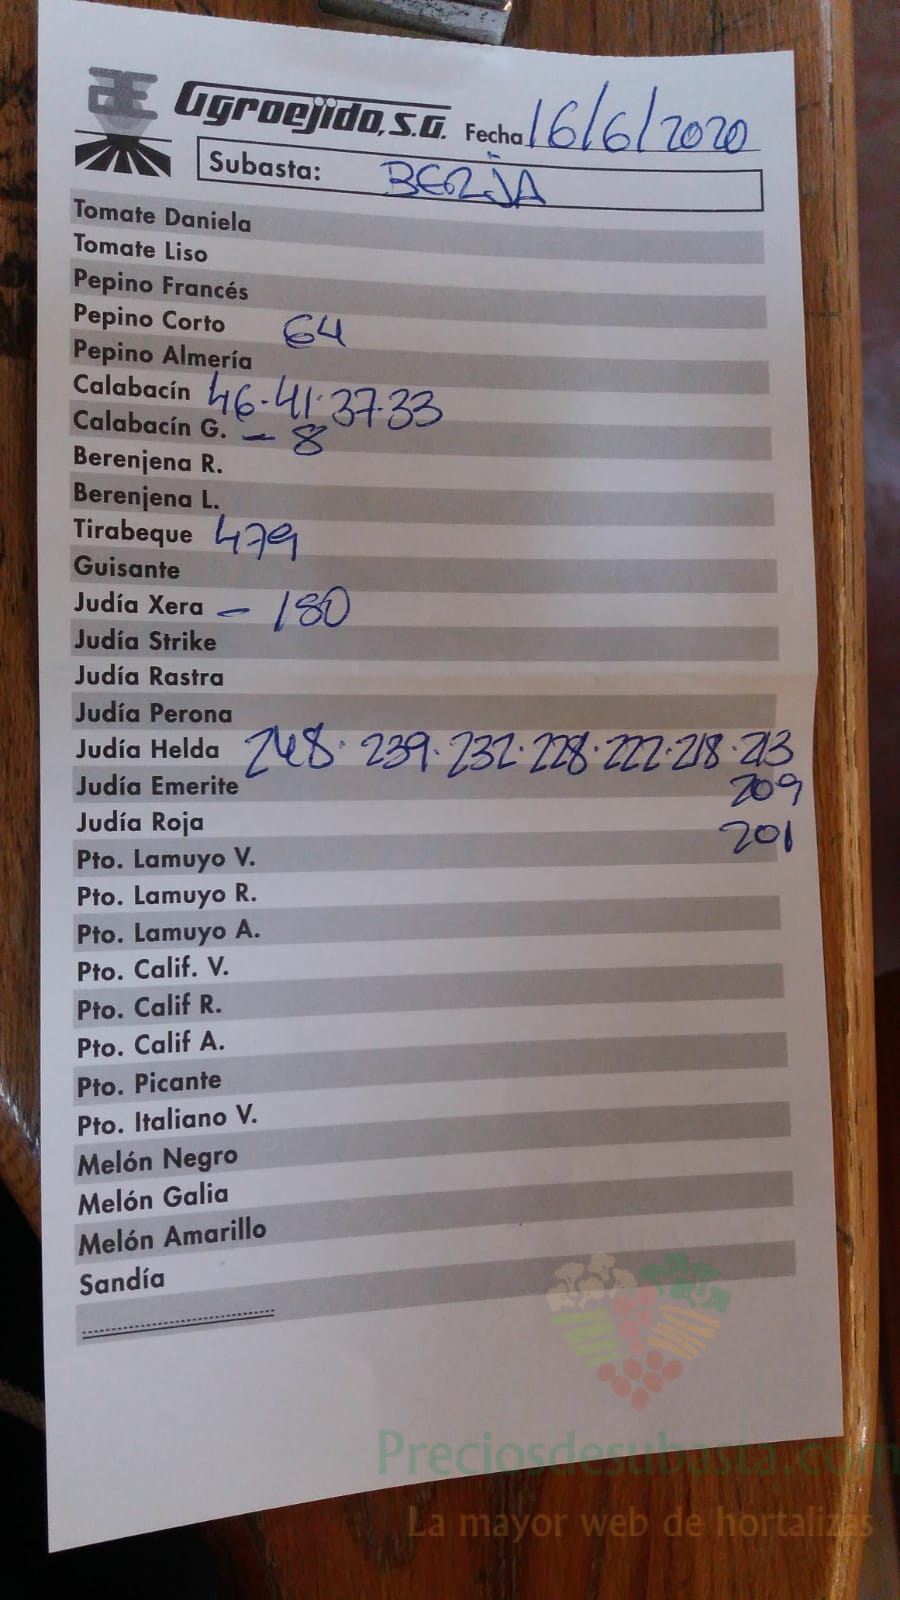 Agroejido, S.A. Fecha 16/6/2020
Subasta: BERJA
Tomate Daniela
Tomate Liso
Pepino Francés
Pepino Corto 64
Pepino Almería
Calabacín 46·41·37·33
Calabacín G. – 8
Berenjena R.
Berenjena L.
Tirabeque 479
Guisante
Judía Xera – 180
Judía Strike
Judía Rastra
Judía Perona
Judía Helda 248·239·232·228·222·218·213
Judía Emerite 209
Judía Roja 201
Pto. Lamuyo V.
Pto. Lamuyo R.
Pto. Lamuyo A.
Pto. Calif. V.
Pto. Calif R.
Pto. Calif A.
Pto. Picante
Pto. Italiano V.
Melón Negro
Melón Galia
Melón Amarillo
Sandía
Preciosdesubasta.com
La mayor web de hortalizas